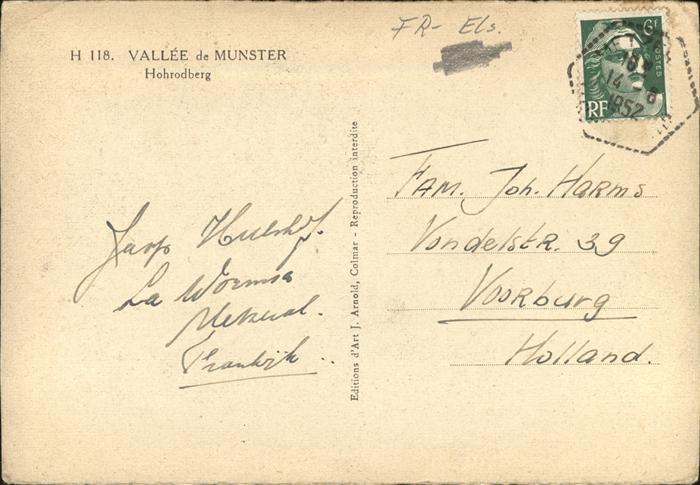 FR- Els.
H 118. VALLÉE de MUNSTER
Hohrodberg
6F
POSTES
RF
14 8
1952
Editions d'Art J. Arnold, Colmar - Reproduction interdite
FAM. Joh. HARMS
Vondelstr. 39
VOORBURG
Holland.
Hulshof.
La Wormsa
Metzeral.
Frankrijk..